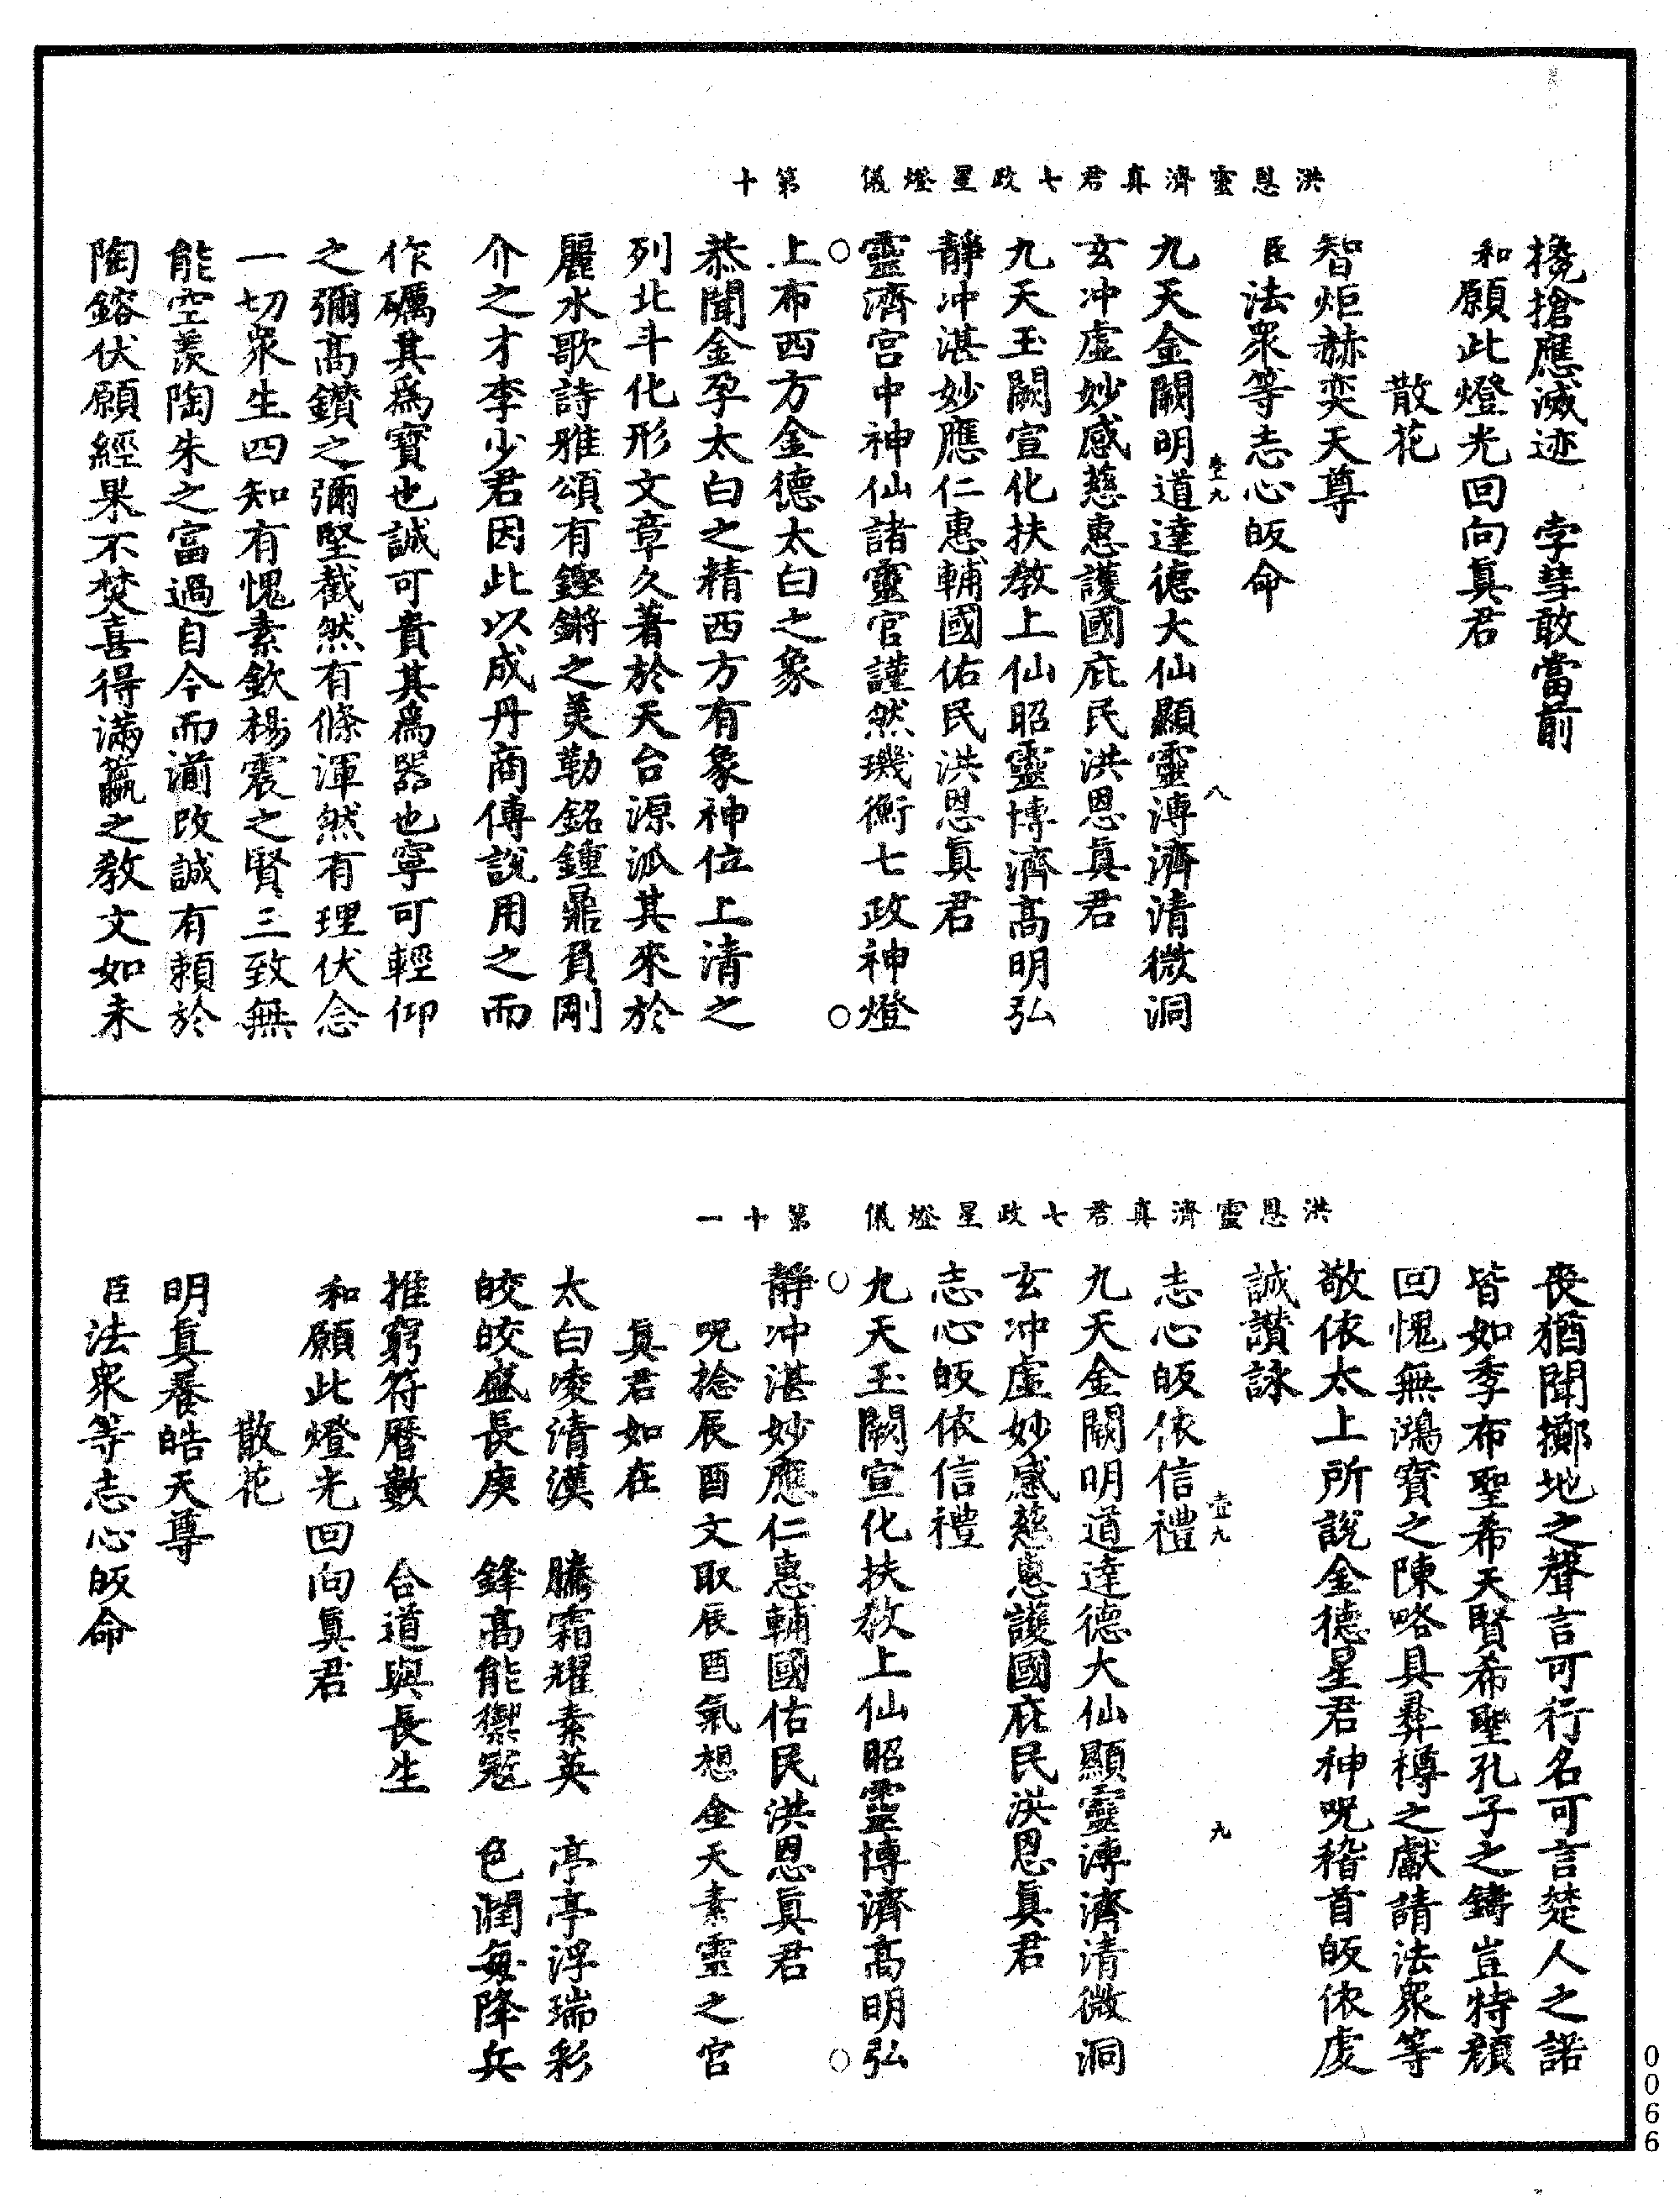 洪恩靈濟真君七政星燈儀　第十
攙搶應滅迹　孛彗敢當前
和願此燈光回向眞君
散花
智炬赫奕天尊
臣法衆等志心皈命
九天金闕明道達德大仙顯靈溥濟清微洞
玄冲虛妙感慈惠護國庇民洪恩眞君
九天玉闕宣化扶教上仙昭靈博濟高明弘
靜冲湛妙應仁惠輔國佑民洪恩眞君
靈濟宮中神仙諸靈官謹然璣衡七政神燈
上布西方金德太白之象
恭聞金孕太白之精西方有象神位上清之
列北斗化形文章久著於天台源派其來於
麗水歌詩雅頌有鏗鏘之美勒銘鍾鼎負剛
介之才李少君因此以成丹商傅說用之而
作礪其爲寳也誠可貴其爲器也寧可輕仰
之彌高鑽之彌堅截然有條渾然有理伏念
一切衆生四知有愧素欽楊震之賢三致無
能空羨陶朱之富過自今而湔改誠有賴於
陶鎔伏願經果不焚喜得滿籯之教文如未
洪恩靈濟真君七政星燈儀　第十一
喪猶聞擲地之聲言可行名可言楚人之諾
皆如季布聖希天賢希聖孔子之鑄豈特顏
回愧無鴻寳之陳略具彛樽之獻請法衆等
敬依太上所說金德星君神呪稽首皈依虔
誠讃詠
志心皈依信禮
九天金闕明道達德大仙顯靈溥濟清微洞
玄冲虛妙感慈惠護國庇民洪恩眞君
志心皈依信禮
九天玉闕宣化扶教上仙昭靈博濟高明弘
靜冲湛妙應仁惠輔國佑民洪恩眞君
呪捻辰酉文取辰酉氣想金天素靈之宮
眞君如在
太白凌清漢　騰霜耀素英　亭亭浮瑞彩
皎皎盛長庚　鋒高能禦寇　色潤每降兵
推窮符曆數　合道與長生
和願此燈光回向眞君
散花
明眞養皓天尊
臣法衆等志心皈命
0066